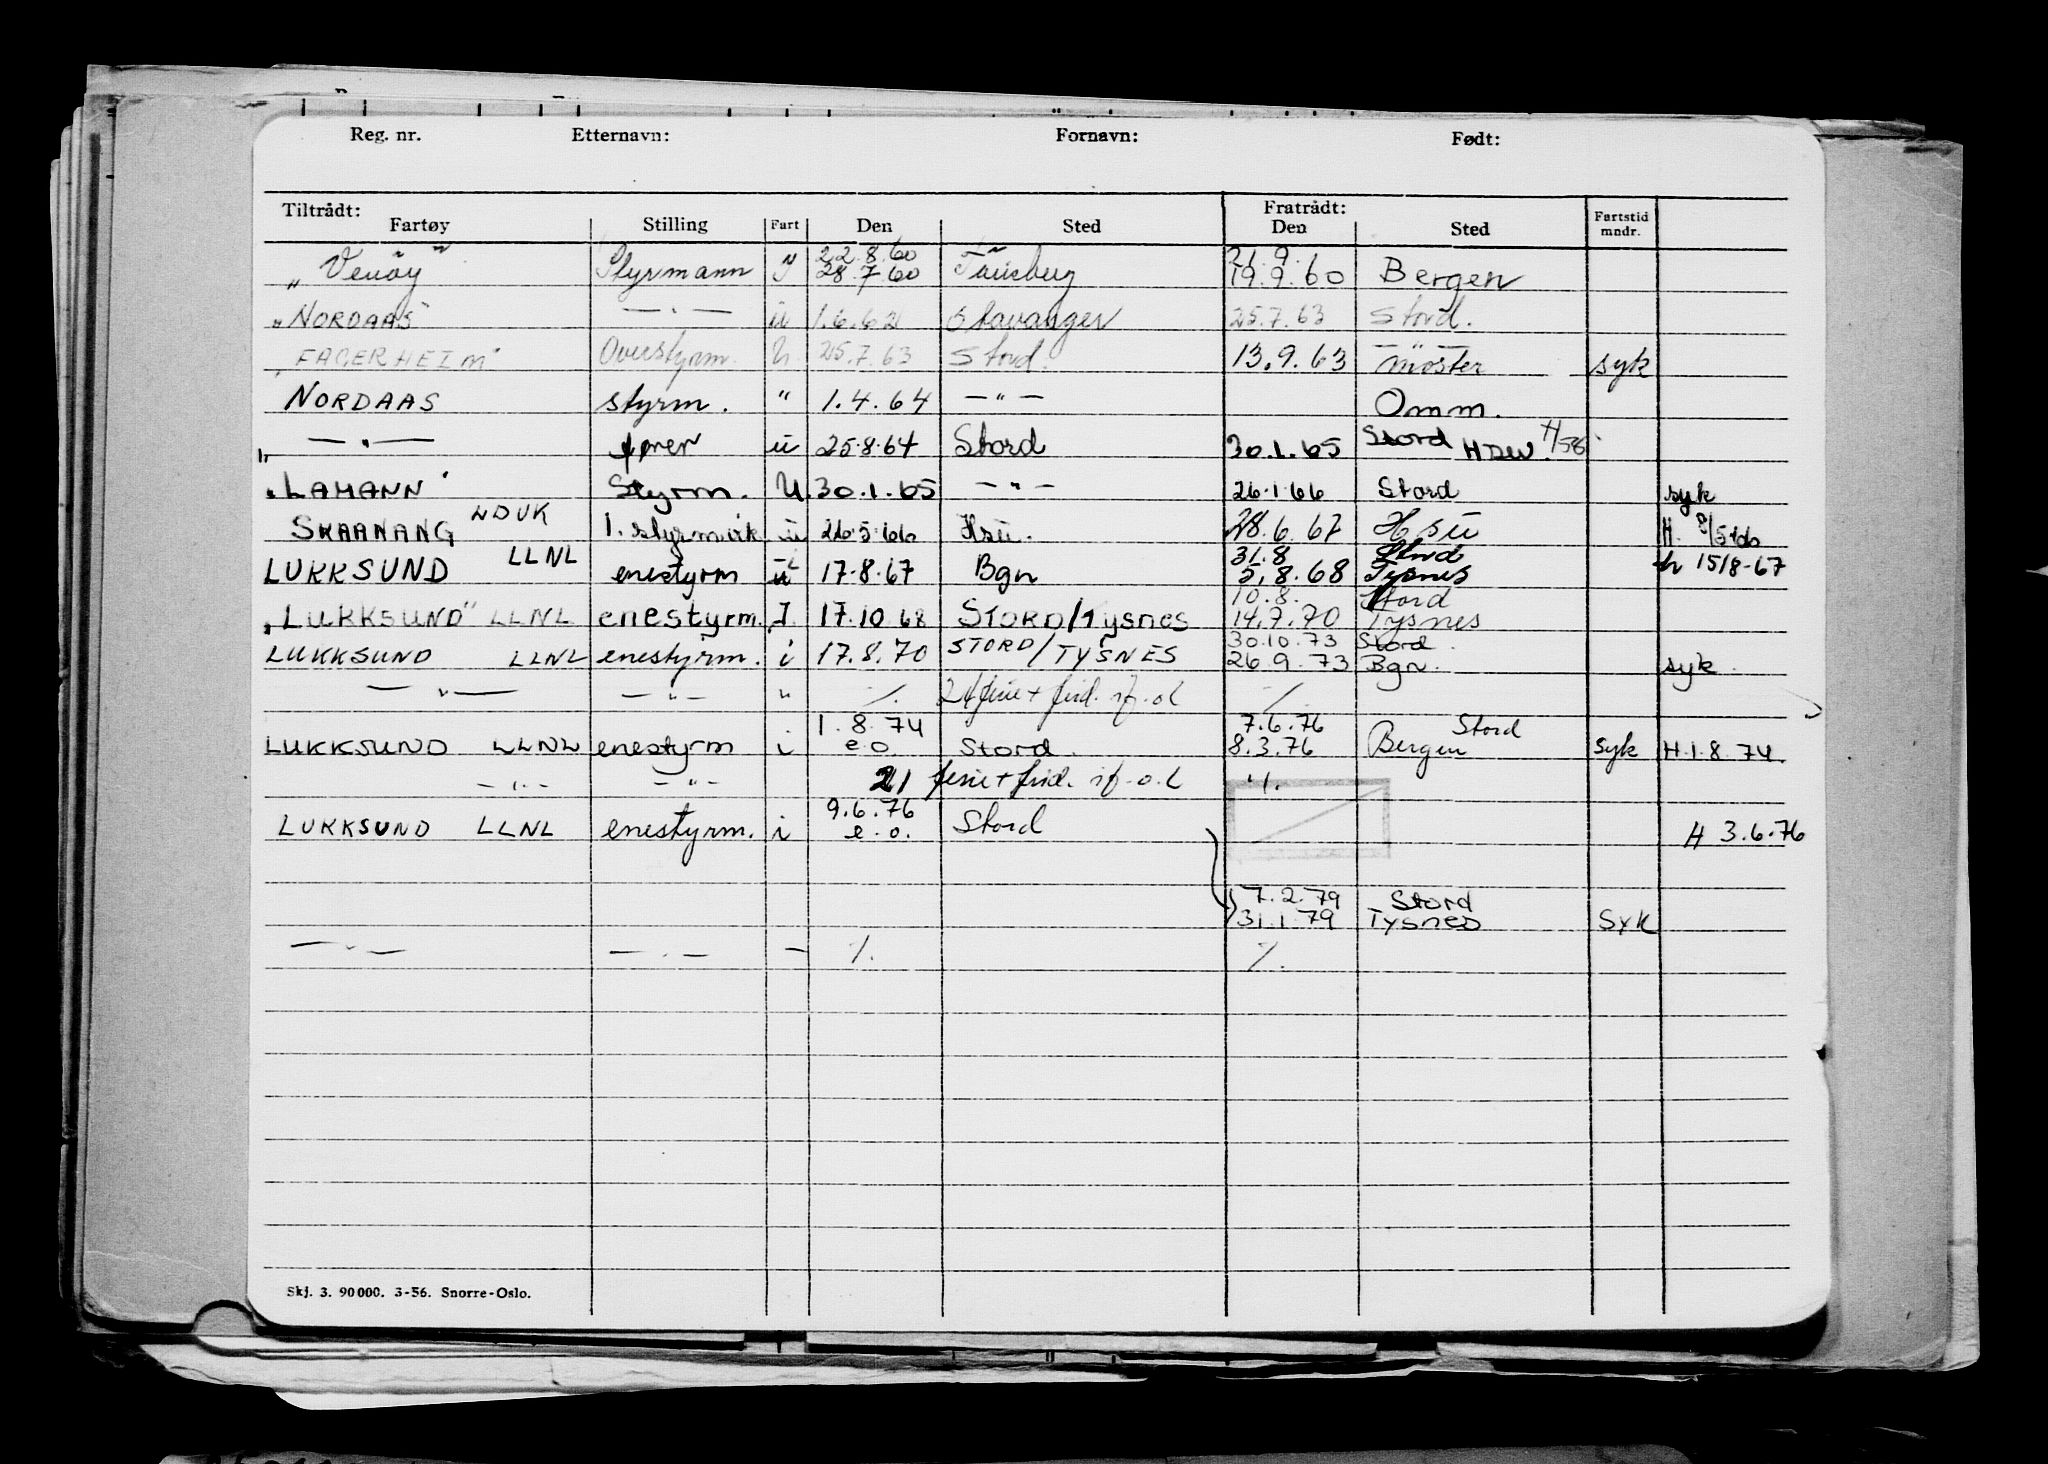 Reg. nr. Etternavn: Fornavn: Født:
Tiltrådt: Fratrådt:
Fartøy Stilling Fart Den Sted Den Sted Fartstid mndr.
22.8.60 21.9.
„Venöy" Styrmann 28.7.60 Tønsberg 19.9.60 Bergen
„NORDAAS" — " — ü 1.6.62 Stavanger 25.7.63 Stord.
„FAGERHEIM" Overstyrm. U. 25.7.63 Stord. 13.9.63 — " — Moster syk
NORDAAS styrm. " 1.4.64 — " — Omm.
— " — ü 25.8.64 Stord 30.1.65 Stord
„LAMANN" Styrm. U. 30.1.65 — " — 26.1.66 Stord syk
SKAANANG LDUK 1. styrmvik ü 26.5.66 Hsü. 28.6.67 Hsü H.
31.8 Stord
LUKKSUND LLNL enestyrm ü 17.8.67 Bgn 5.8.68 Tysnes h 15/8-67
10.8. Stord
„LUKKSUND" LLNL enestyrm. I. 17.10.68 STORD/Tysnes 14.7.70 Tysnes
30.10.73 Stord.
LUKKSUND LLNL enestyrm. i 17.8.70 STORD/TYSNES 26.9.73 Bgn. syk.
— " — — " — " ⁒ ferie + frid. if. o.l ⁒
1.8.74 7.6.76 Stord
LUKKSUND LLNL enestyrm i e.o. Stord. 8.3.76 Bergen syk H.1.8.74.
— " — — " — 21 ferie + frid. if. o.l ⁒
9.6.76
LUKKSUND LLNL enestyrm. i e.o. Stord H 3.6.76
7.2.79 Stord
31.1.79 Tysnes SYK
— " — — " — — ⁒ ⁒
Skj. 3. 90000. 3-56. Snorre-Oslo.